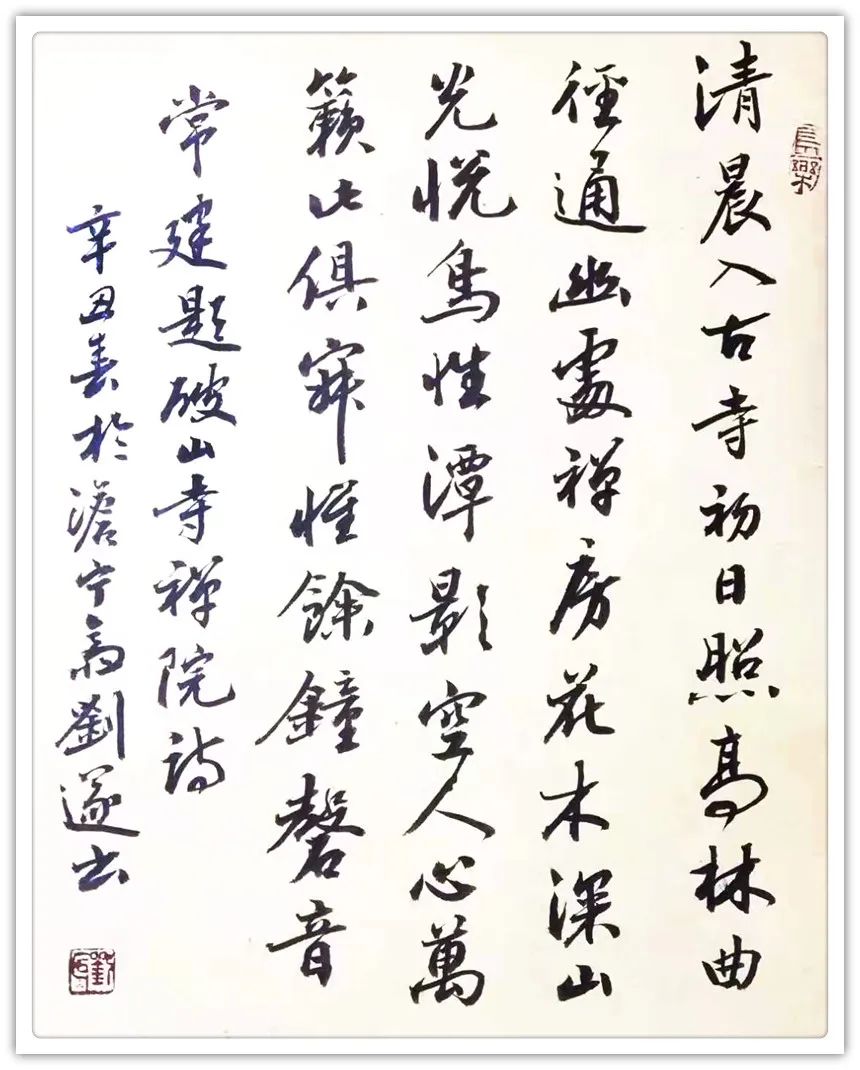 清晨入古寺初日照高林曲
徑通幽處禅房花木深山
光悦鳥性潭影空人心萬
籟此俱寂惟餘鐘磬音
常建題破山寺禅院詩
辛丑春於澹宁齋劉遂書
長樂